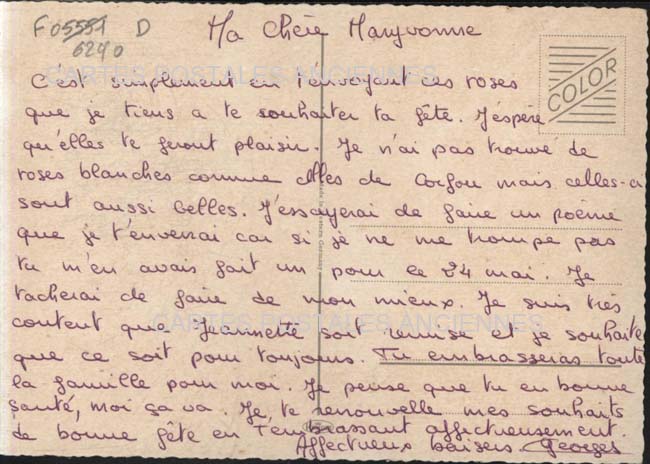 F05551 D
6240
Ma Chère Maryvonne
COLOR
CARTES POSTALES ANCIENNES
C'est simplement en t'envoyant ces roses
que je tiens a te souhaiter ta fête. J'éspère
qu'elles te feront plaisir. Je n'ai pas trouvé de
roses blanches comme celles de Corfou mais celles-ci
sont aussi belles. J'essayerai de faire un poème
que je t'enverrai car si je ne me trompe pas
tu m'en avais fait un pour le 24 mai. Je
tacherai de faire de mon mieux. Je suis très
CARTES POSTALES ANCIENNES
content que Jeannette soit remise et je souhaite
que ce soit pour toujours. Tu embrasseras toute
la famille pour moi. Je pense que tu es en bonne
santé, moi ça va. Je te renouvelle mes souhaits
de bonne fête en t'embrassant affectueusement.
Affectueux baisers Georges